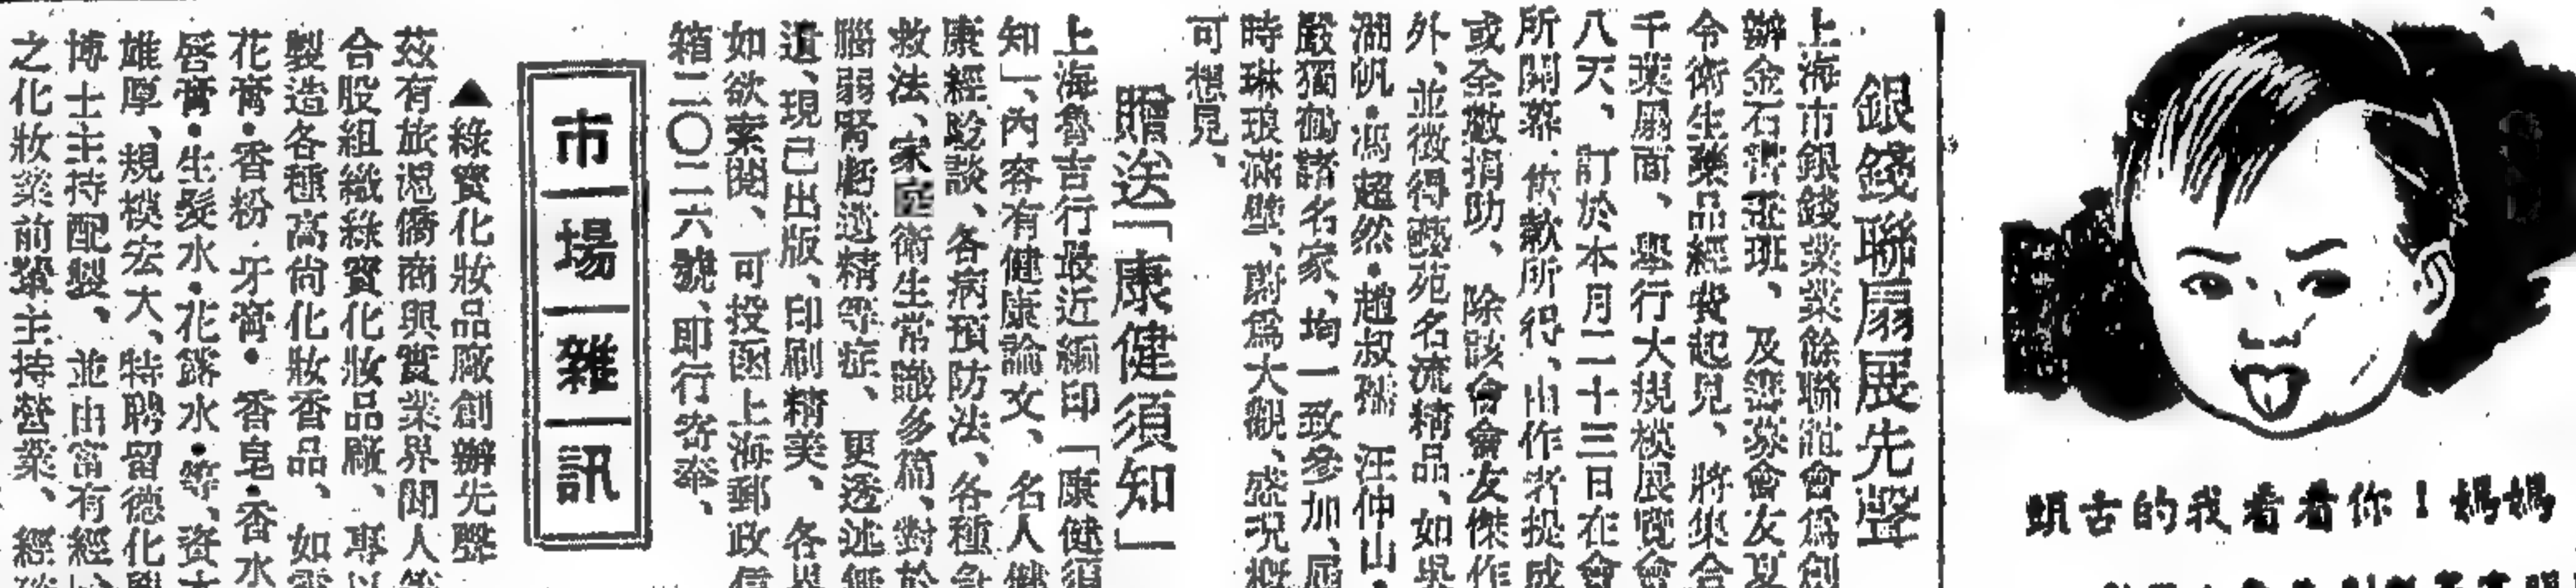 媽媽！你看看我的古頭
銀錢聯扇展先聲
上海市銀錢業業餘聯誼會爲創
辦金石書畫班、及籌募會友夏
令衛生藥品經費起見、將集合
千葉扇面、舉行大規模展覽會
八天、訂於本月二十三日在會
所開幕、售款所得、由作者提成
或全數捐助、除該會會友傑作
外、並徵得藝苑名流精品、如吳
湖帆・馮超然・趙叔孺 汪仲山、
嚴獨鶴諸名家、均一致參加、屆
時琳琅滿壁、蔚爲大觀、盛況概
可想見、
贈送「康健須知」
上海魯吉行最近編印「康健須
知」、內容有健康論文、名人健
康經驗談、各病預防法、各種急
救法、家庭衛生常識多篇、對於
腦弱腎虧遺精等症、更透述無
遺、現已出版、印刷精美、各界
如欲索閱、可投函上海郵政信
箱二〇二六號、即行寄奉、
市場雜訊
▲綠寶化妝品廠創辦先聲
茲有旅暹僑商與實業界聞人等
合股組織綠寶化妝品廠、專以
製造各種高尚化妝香品、如雪
花膏・香粉 牙膏・香皂・香水
唇膏・生髮水・花露水・等、資本
雄厚、規模宏大、特聘留德化學
博士主持配製、並由富有經驗
之化妝業前輩主持營業、經